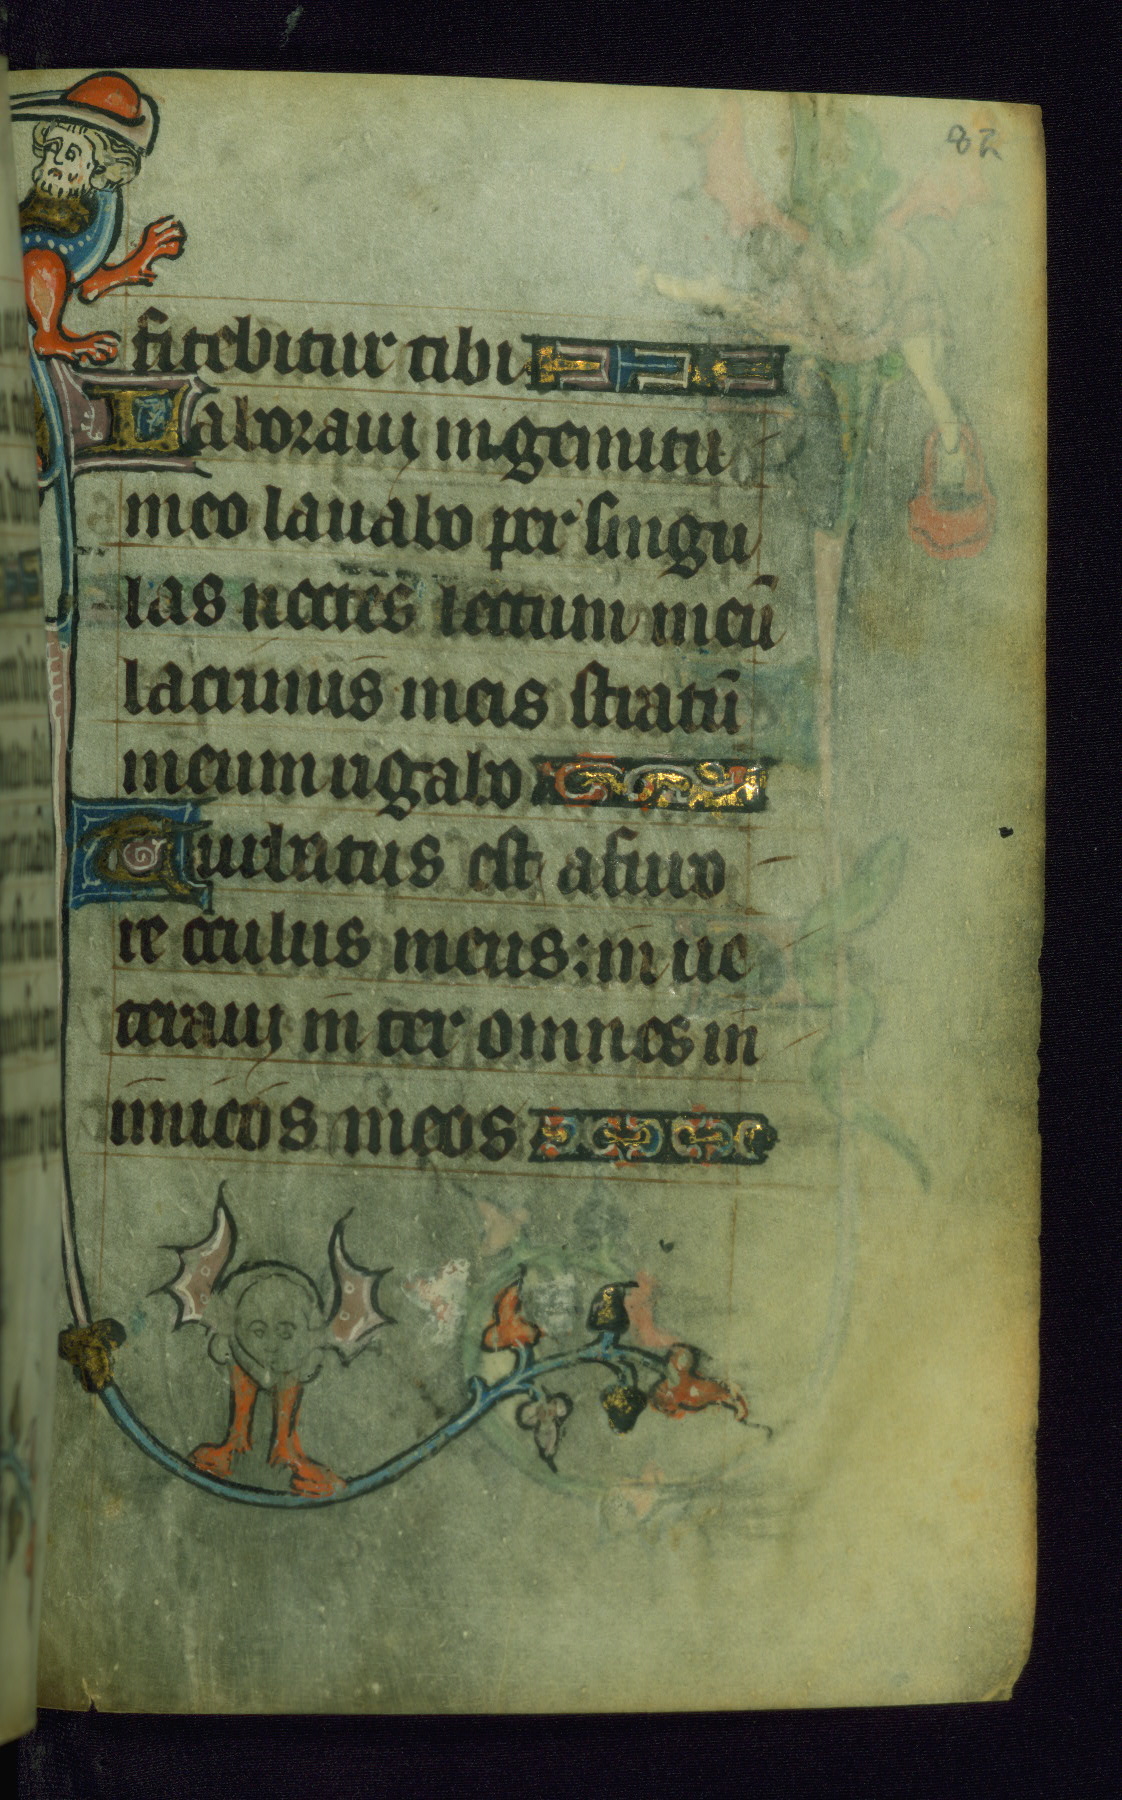 82
fitebitur tibi
Laboraui in gemitu
meo lauabo per singu
las noctes lectum meū
lacrimis meis stratū
meum rigabo
Turbatus est a furo
re oculus meus: in ue
teraui inter omnes in
imicos meos